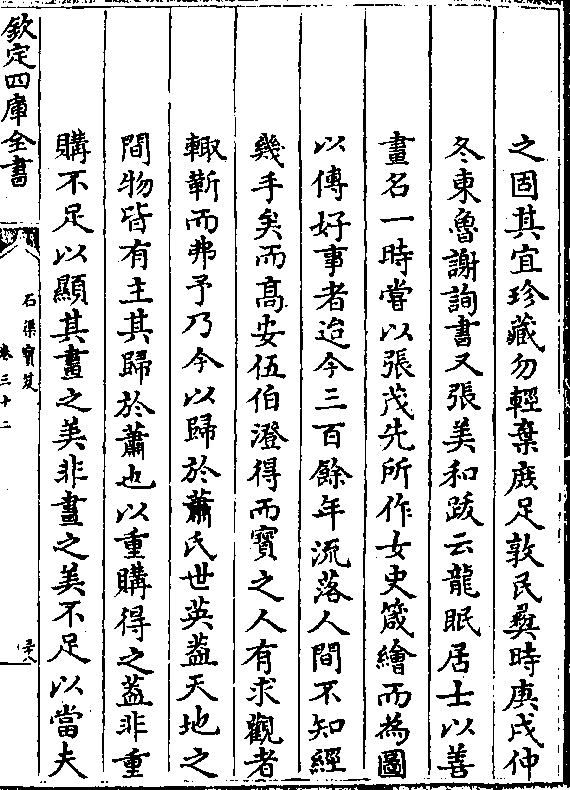 之固其宜珍藏勿輕棄庶足敦民彛時庚戌仲
冬東魯謝詢書又張美和跋云龍眠居士以善
畫名一時嘗以張茂先所作女史箴繪而為圖
以傳好事者迨今三百餘年流落人間不知經
幾手矣而髙安伍伯澄得而寳之人有求觀者
輙靳而弗予乃今以歸於蕭氏世英葢天地之
間物皆有主其歸於蕭也以重購得之葢非重
購不足以顯其畫之美非畫之美不足以當夫
欽定四庫全書
石渠寳笈
卷三十二